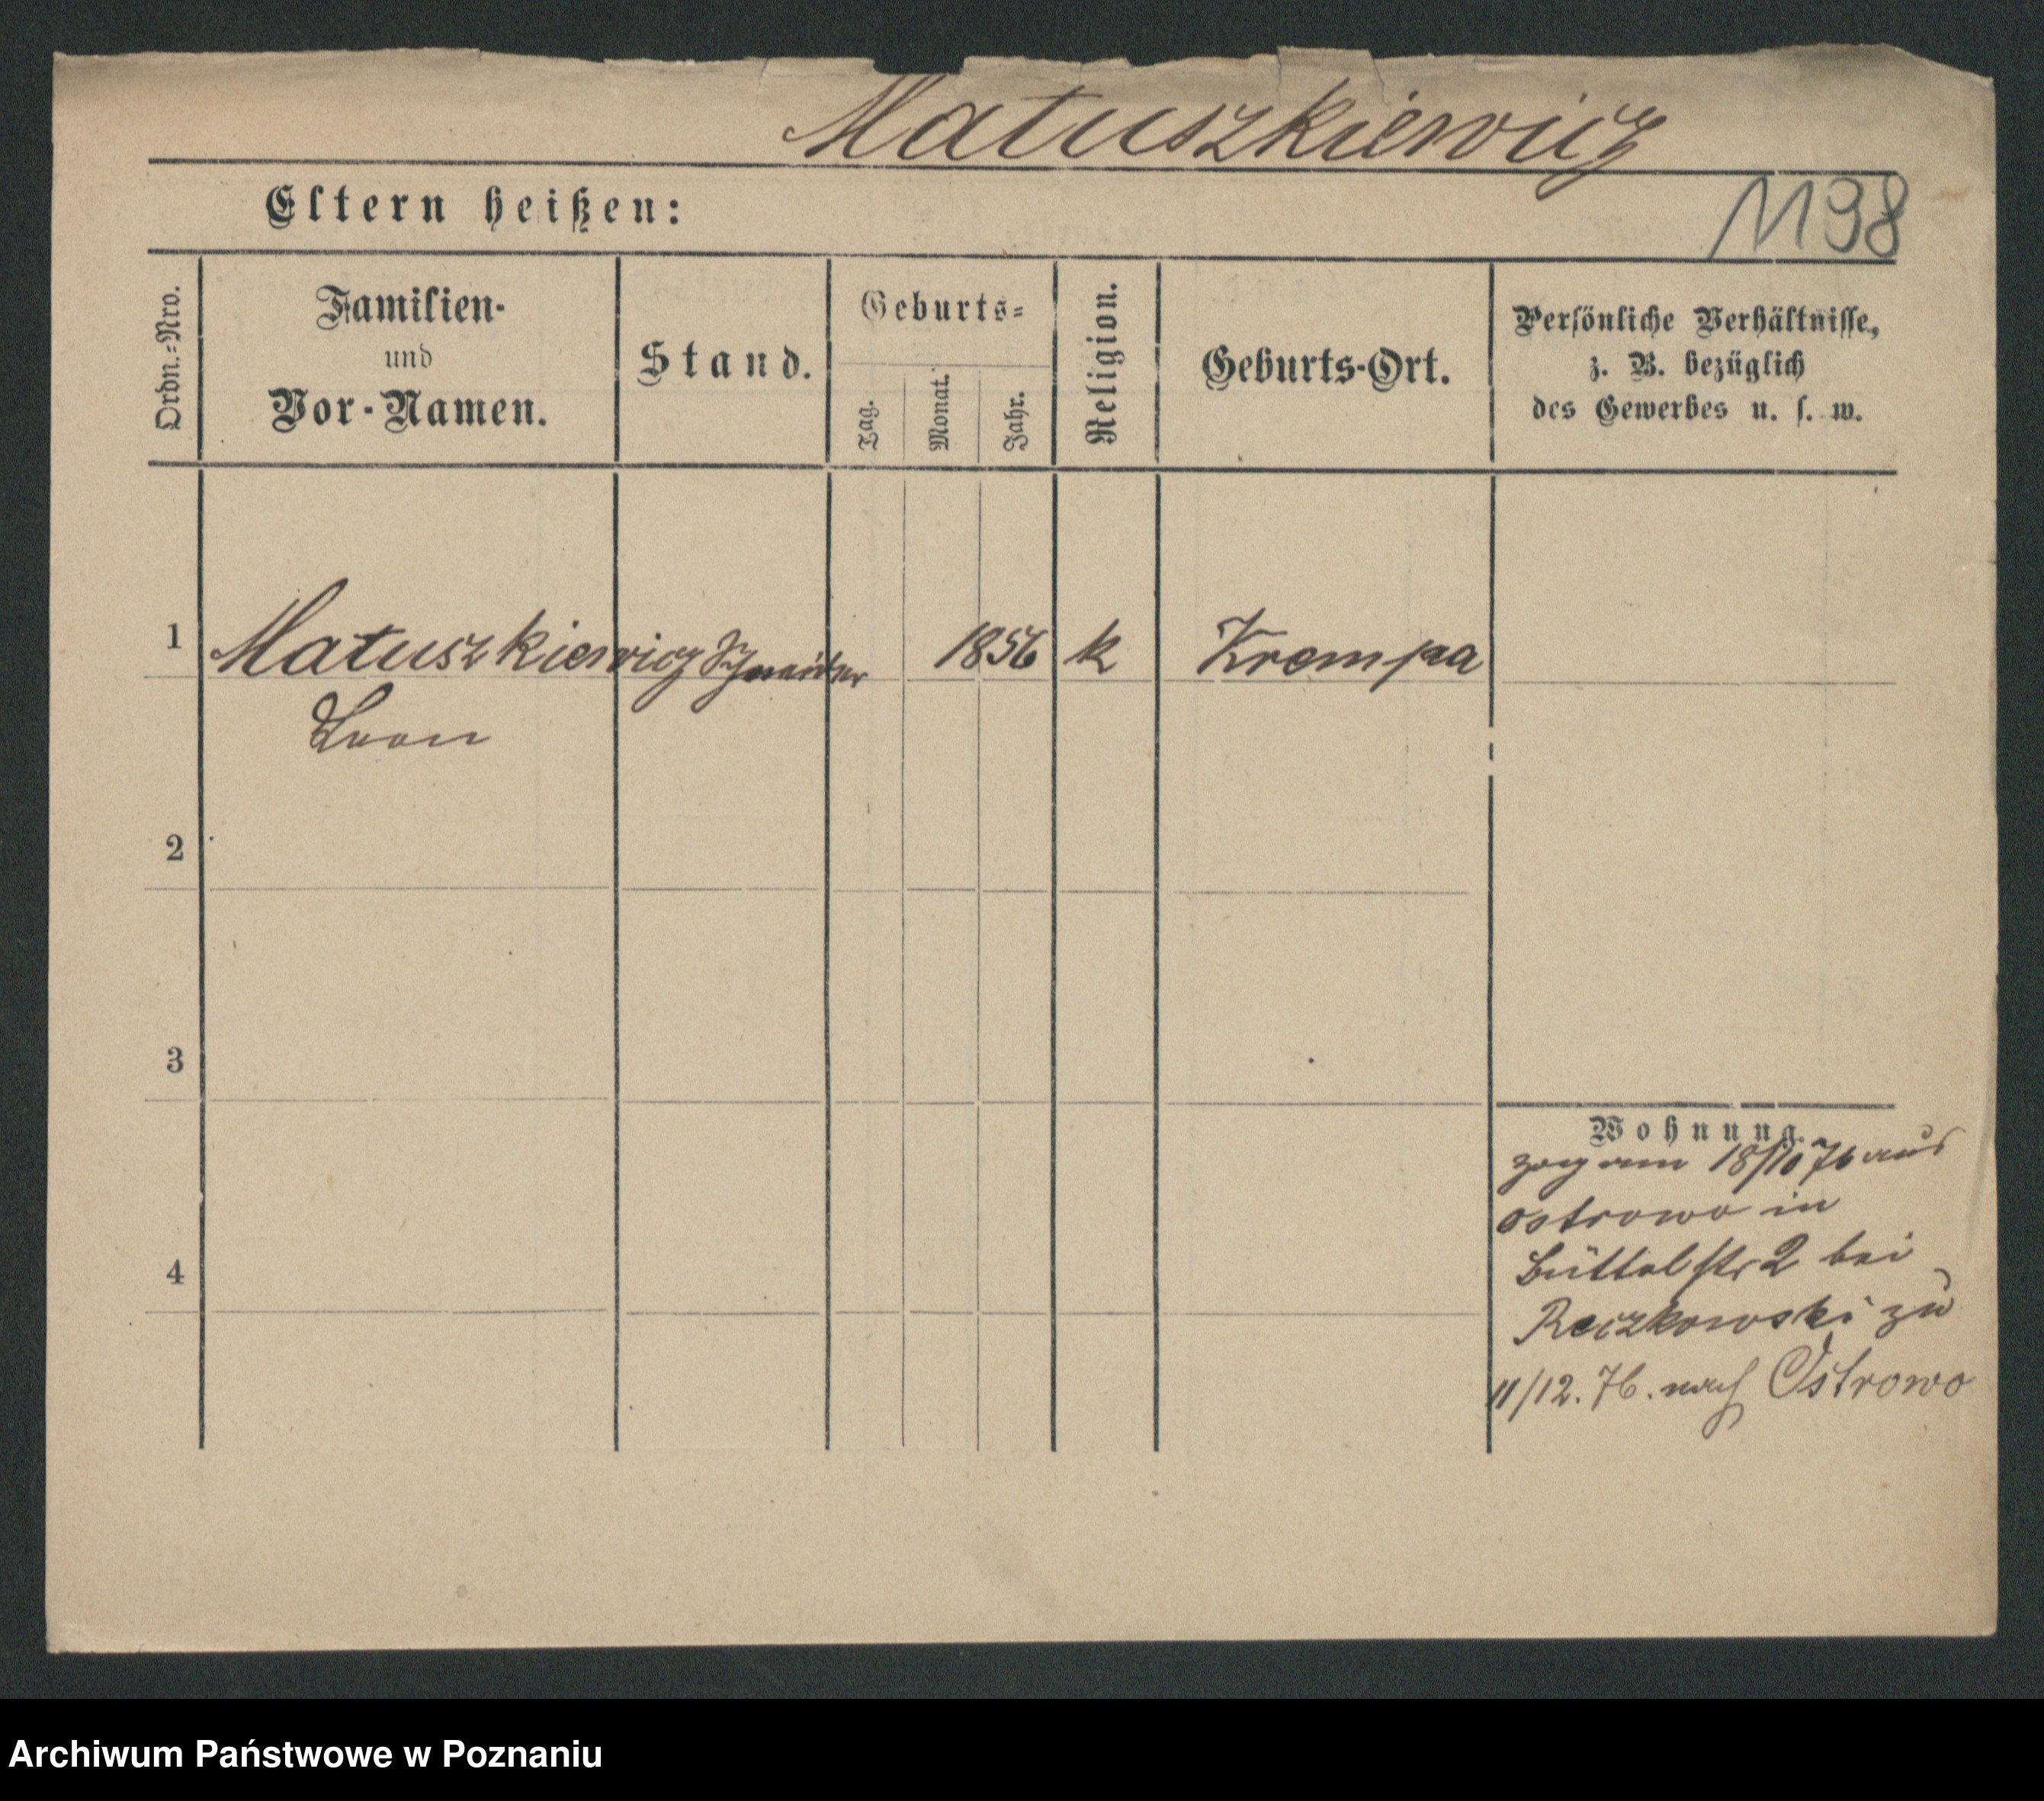 Matuszkiewicz
Eltern heißen:
1198
Ordn.=Nro.
Familien-
und
Vor-Namen.
Stand.
Geburts=
Tag.
Monat.
Jahr.
Religion.
Geburts-Ort.
Persönliche Verhältnisse,
z. B. bezüglich
des Gewerbes u. s. w.
1 Matuszkiewicz Schneider 1856 k Krempa
Leon
2
3
4
Wohnung.
zog am 18/10 76 aus
Ostrowo in
Büttelstr 2 bei
Reczkowski zu
11/12. 76. nach Ostrowo
Archiwum Państwowe w Poznaniu